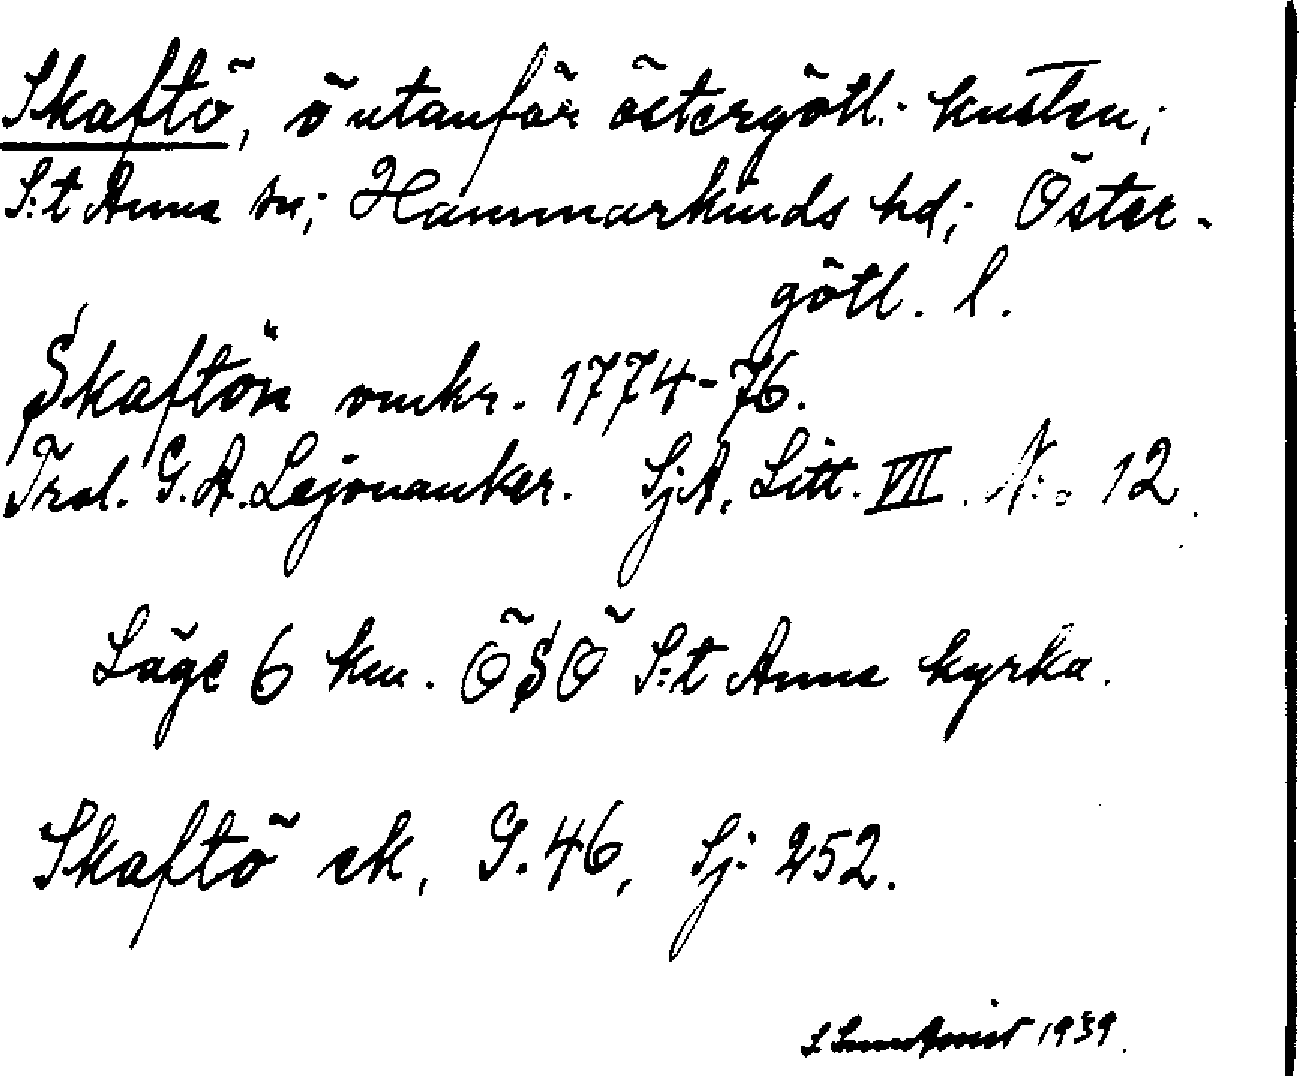 Skaftö, ö utanför östergötl. kusten;
S:t Anna sn; Hammarkinds hd; Öster-
götl. l.
Skaftön omkr. 1774-76.
G. A. Lejonanker. SjA. Litt. VII. N:o 12.
Läge 6 km. ÖSÖ S:t Anna kyrka.
Skaftö ek, G. 46, Sj: 252.
1939.